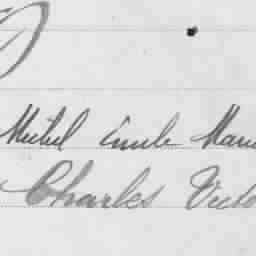 Michel Emile Mari
Charles Victo